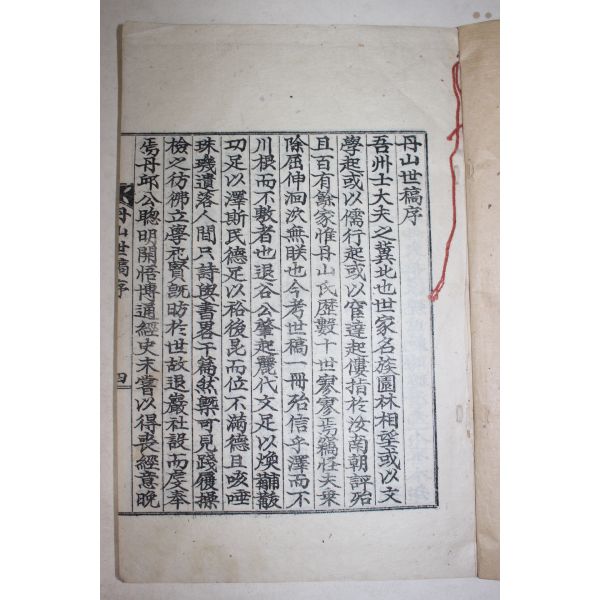 丹山世稿序
吾州士大夫之冀北也世家名族園林相望或以文
學起或以儒行起或以宦達起僂指於汝南朝評殆
且百有餘家惟丹山氏歷數十世寥寥焉竊怪夫乘
除屈伸洄㳄無眹也今考世稿一冊殆信乎澤而不
川根而不敷者也退谷公肇起麗代文足以煥黼黻
功足以澤斯民德足以裕後昆而位不滿德且咳唾
珠璣遺落人間只詩與書畧干篇然槩可見踐履操
檢之彷彿立學祀賢旣昉於世故退嚴社設而虔奉
焉丹邱公聰明開悟博通經史未嘗以得喪經意晩
丹山世稿序
四